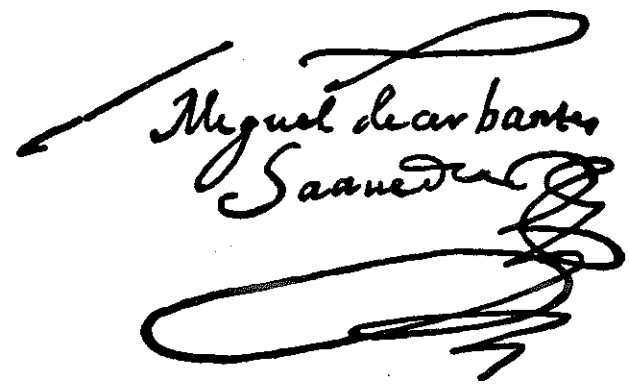 Miguel decerbantes
Saauedra